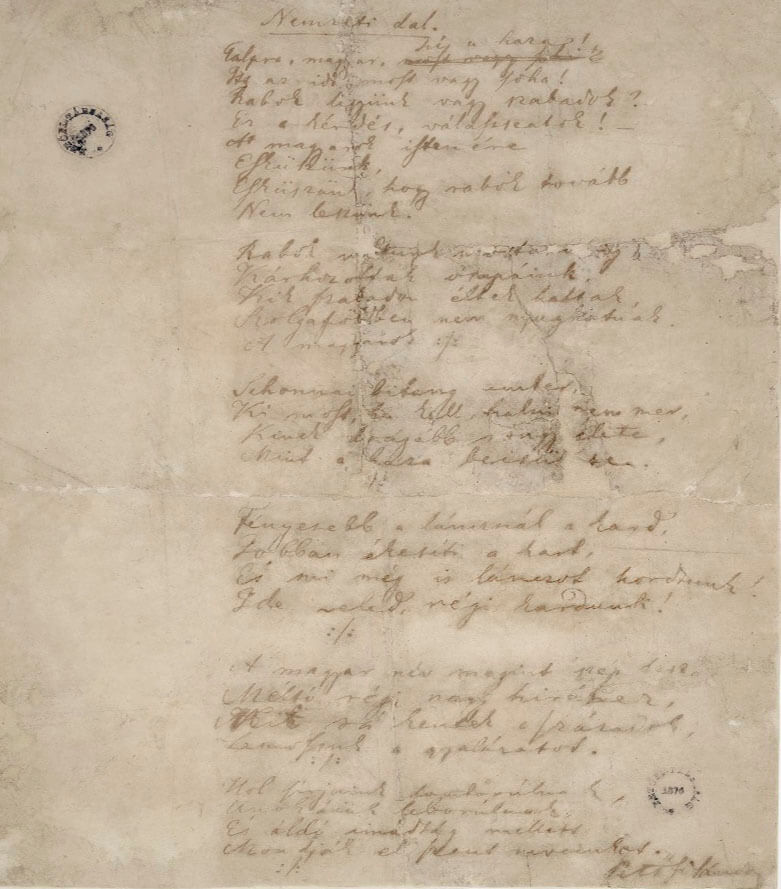 Nemzeti dal.
hí a haza!
Talpra, magyar, most vagy soha!
Itt az idő, most vagy soha!
Rabok legyünk vagy szabadok?
Ez a kérdés, válasszatok! —
A magyarok istenére
Esküszünk,
Esküszünk, hogy rabok tovább
Nem leszünk.
Rabok voltunk mostanáig
Kárhozottak ősapáink,
Kik szabadon éltek haltak,
Szolgaföldben nem nyughatnak.
A magyarok :/:
Sehonnai bitang ember,
Ki most, ha kell, halni nem mer,
Kinek drágább rongy élete,
Mint a haza becsülete.
:/:
Fényesebb a láncznál a kard,
Jobban ékesíti a kart,
És mi még is lánczot hordunk!
Ide veled, régi kardunk!
:/:
A magyar név megint szép lesz,
Méltó régi nagy hiréhez,
Mit rá kentek a századok,
Lemossuk a gyalázatot.
:/:
Hol sírjaink domborúlnak,
Unokáink leborúlnak,
És áldó imádság mellett
Mondják el szent neveinket.
:/:
Petőfi Sándor
1876